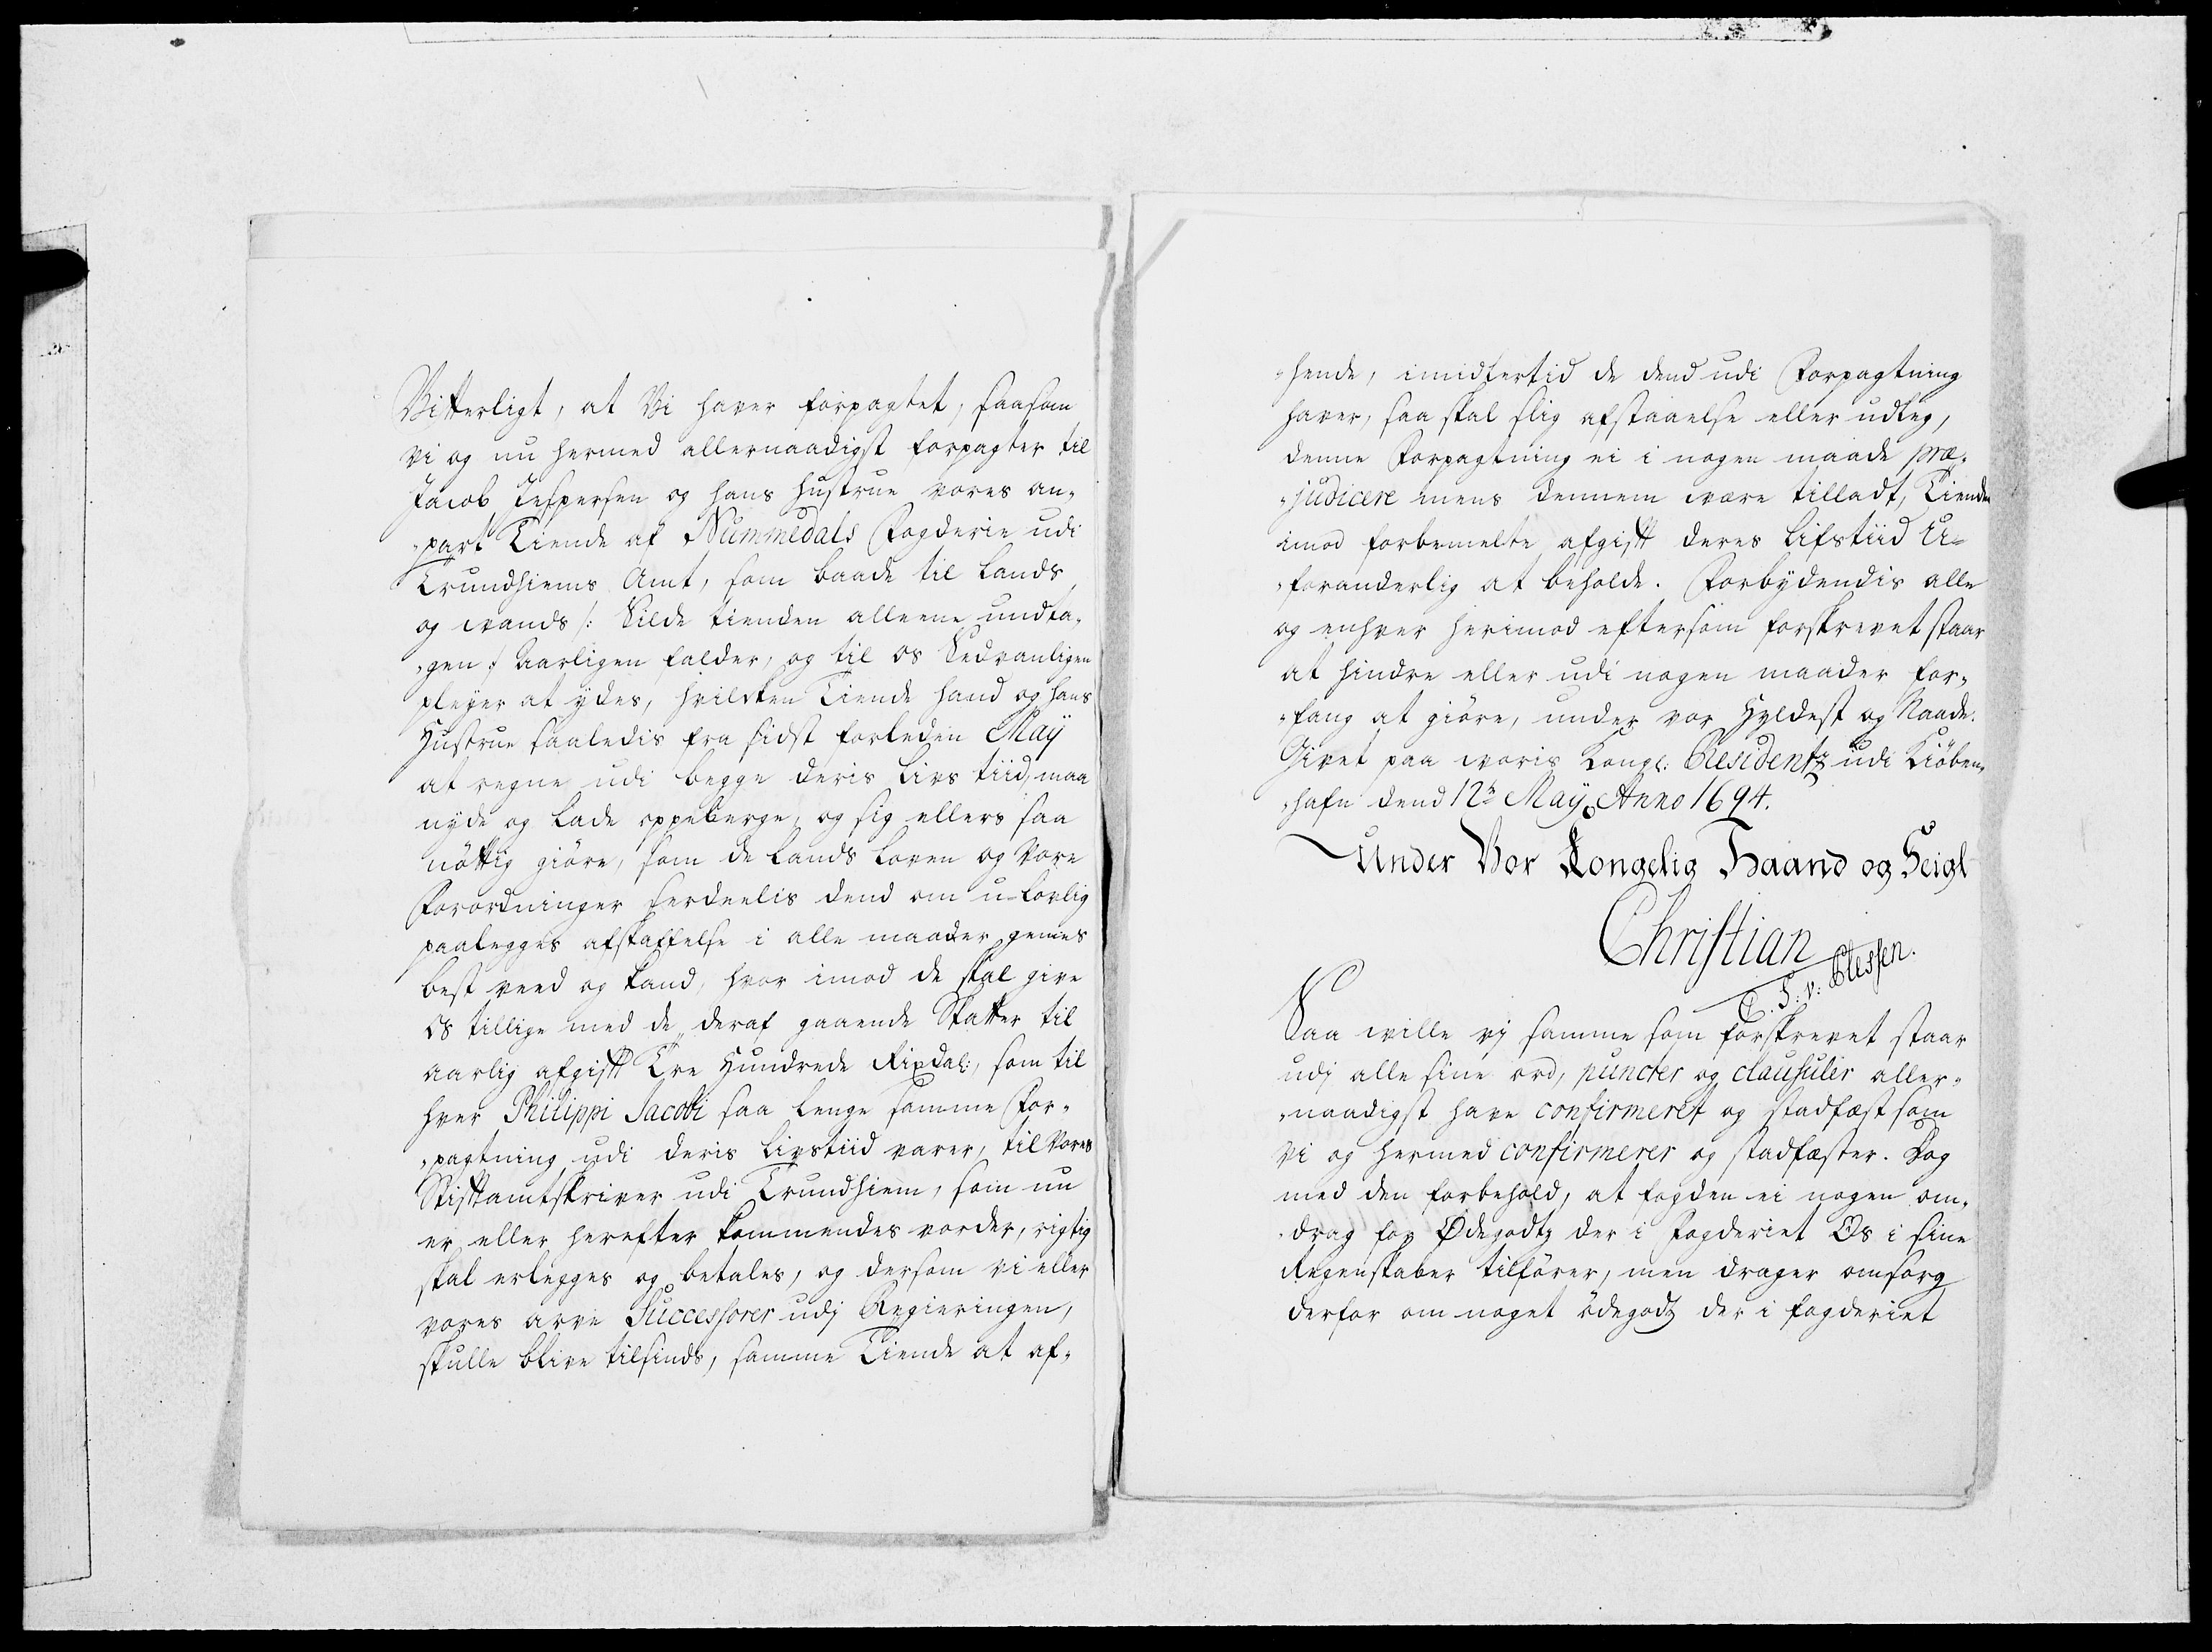 Vitterligt, at Vi haver forpagtet, saasom
vi og nu hermed allernaadigst forpagter til
Jacob Jespersen og hans Hustrue vores an-
-part Tiende af Nummedals Fogderie udi
Trundhiems Amt, som baade til Lands
og vands /: Silde tienden alleene undta-
-gen :/ Aarligen falder, og til os Sedvanligen
pleyer at ydes, hvilcken Tiende hand og hans
Hustrue saaledis fra sidst forleden Maÿ
at regne udi begge deris Livs tiid, maa
nyde og lade oppeberge, og sig ellers saa
nöttig giöre, som de lands loven og Vore
Forordninger serdeelis dend om u-lovlig
paalegges afskaffelse i alle maader gemes
best veed og kand, hvor imod de skal give
os tillige med de deraf gaaende Skatter til
aarlig afgift Tre Hundrede Rixdal:, som til
hver Philippi Jacobi saa lenge samme For-
-pagtning udi deris Livstiid varer, til Vores
Stiftamtskriver udi Trundhiem, som nu
er eller herefter kommendes vorder, rigtig
skal erlegges og betales, og dersom vi eller
vores arve Successorer udj Regieringen,
skulle blive tilsinds, samme Tiende at af-
-hende, imidlertid de dend udi Forpagtning
haver, saa skal slig afstaaelse eller udleg,
denne Forpagtning ei i nogen maade præ-
-judicere mens dennem være tilladt, Tienden
imod forbemelte afgift deres Lifstiid U-
-foranderlig at beholde. Forbydendis alle
og enhver herimod eftersom forskrevet staar
at hindre eller udi nogen maader for-
-fang at giöre, under vor Hyldest og Naade.
Givet paa voris Kongl: Residentz udi Kiöben-
-hafn dend 12te Maÿ Anno 1694.
Under Vor Kongelig Haand og Seigl
Christian
C. S: v: Plessen.
Saa ville vj samme som forskrevet staar
udj alle sine ord, puncter og clausuler aller-
-naadigst have confirmeret og stadfæst som
Vi og hermed confirmerer og stadfæster. Dog
med den forbehold, at fogden ei nogen om-
-drag for Ødegodtz der i Fogderiet Os i sine
Regenskaber tilförer, men drager omsorg
derfor om noget ödegodtz der i fogderiet